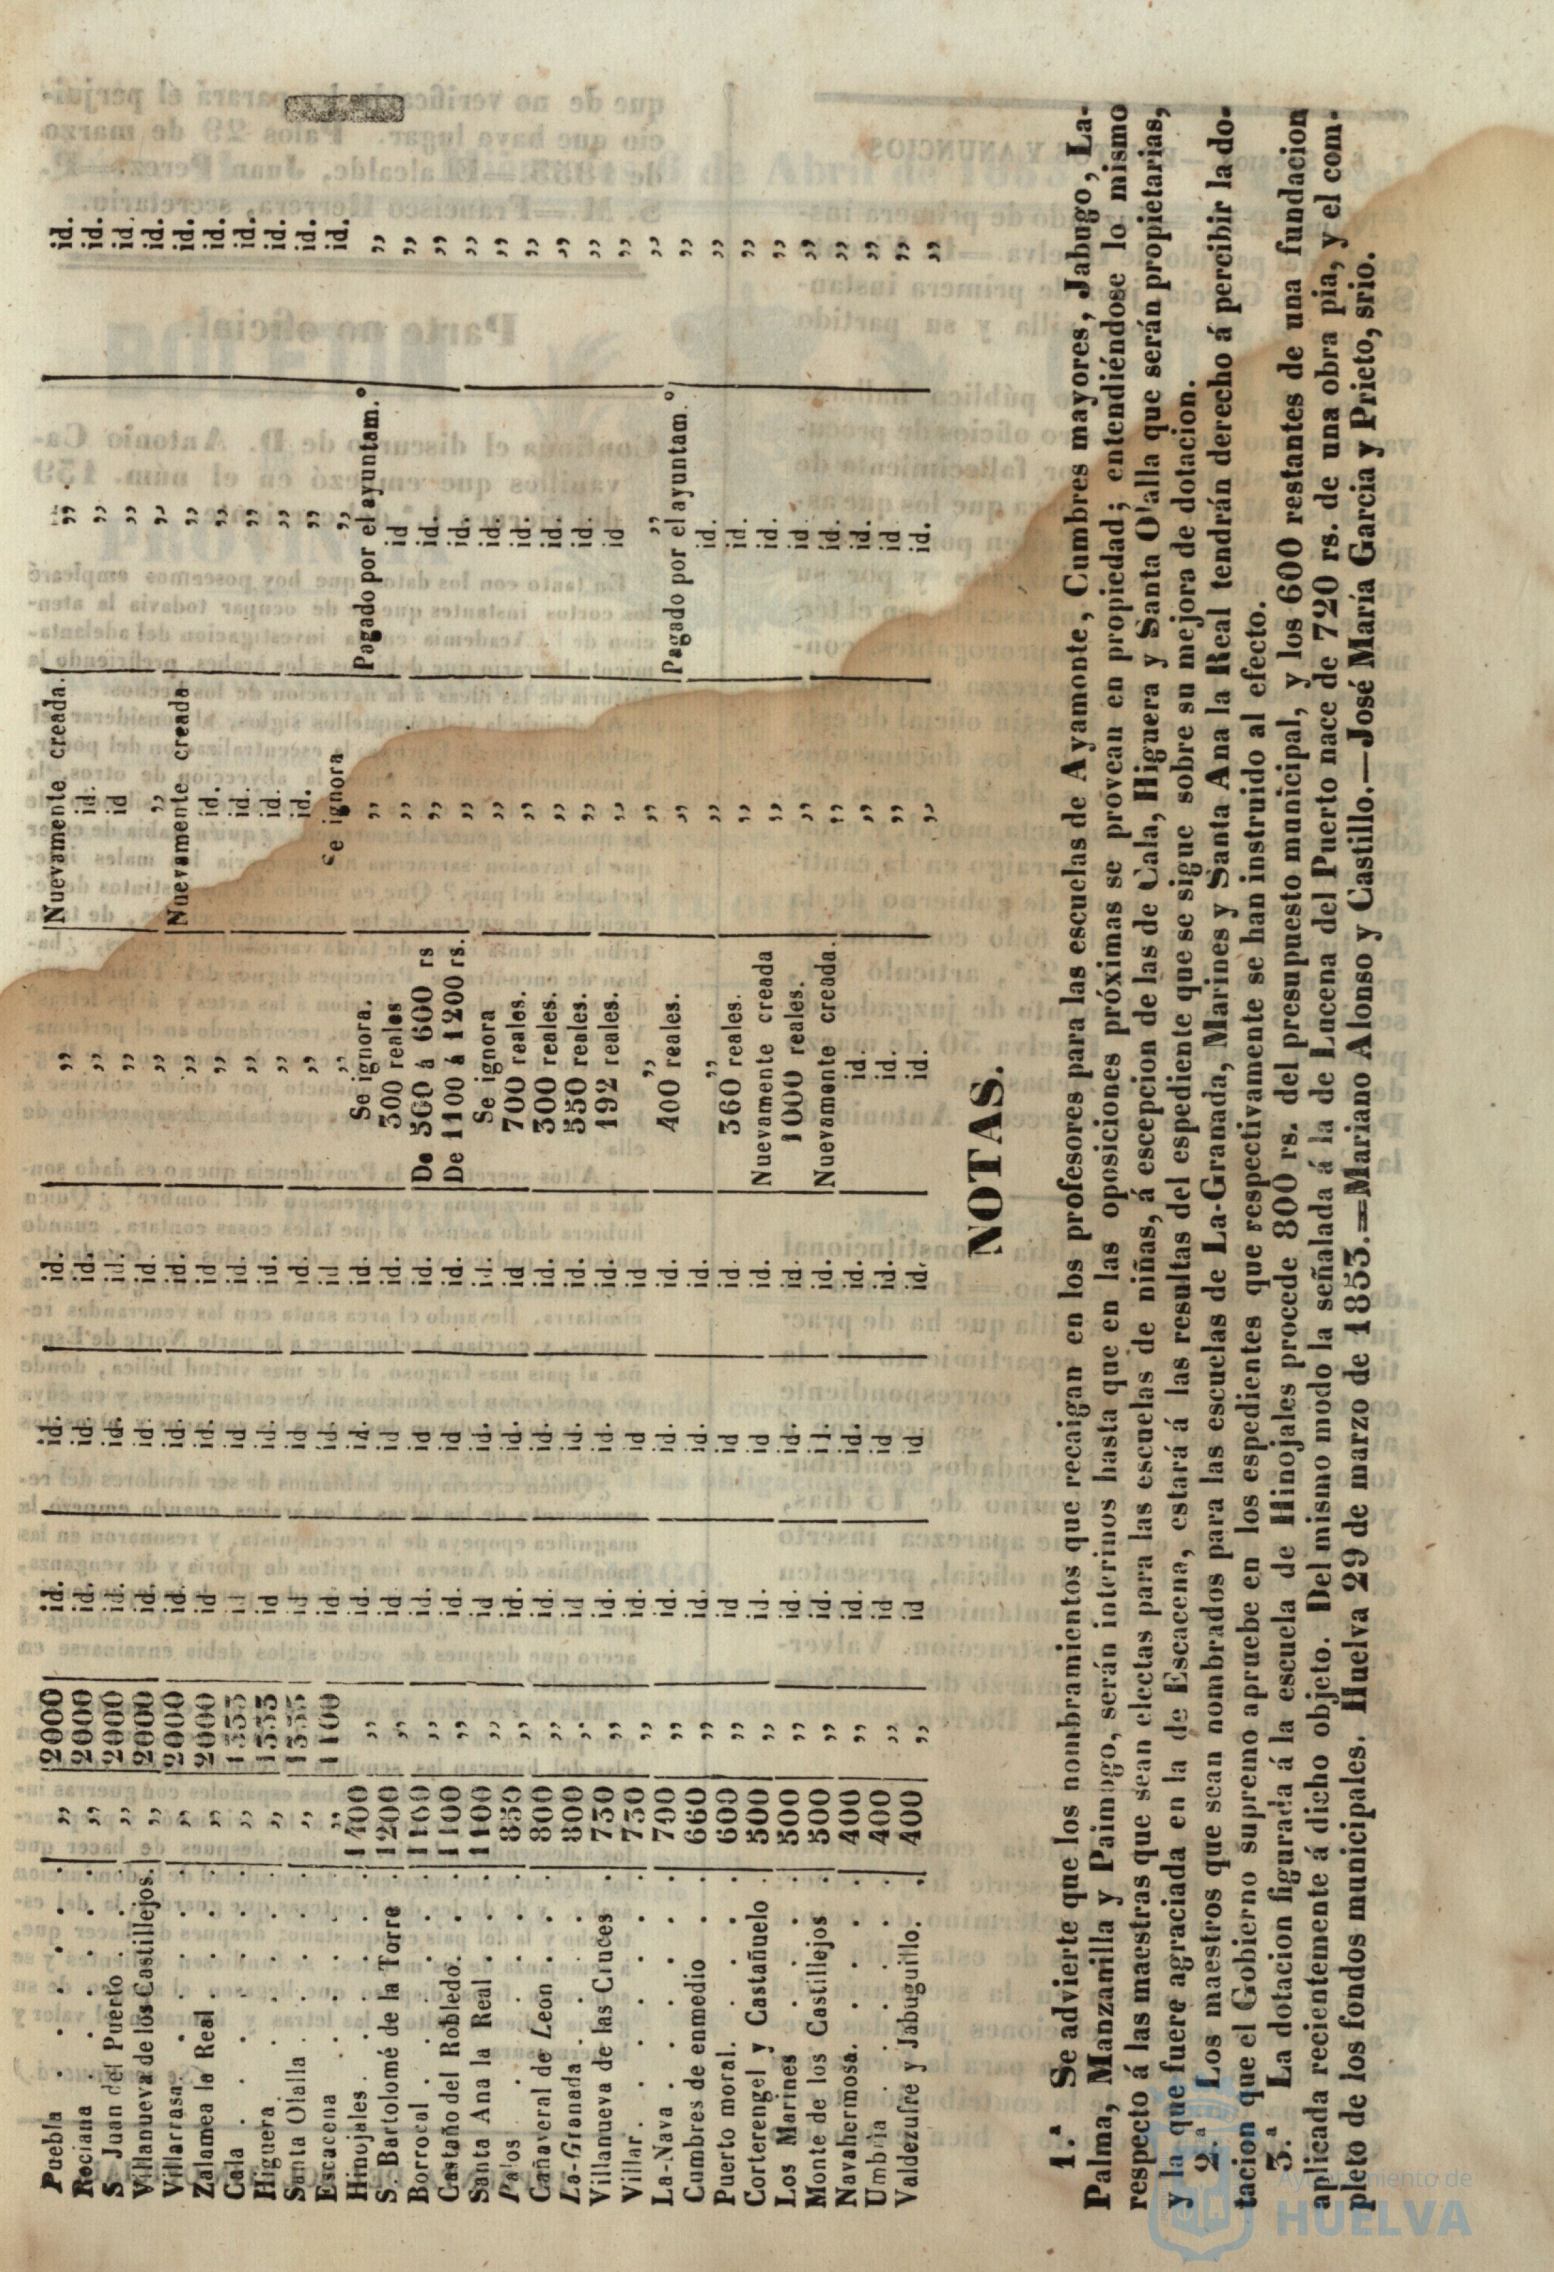 Puebla . . . . . „ 2000 id. id. id. „ Nuevamente creada. „ id.
Rociana . . . . . „ 2000 id. id. id. „ id. „ id.
S. Juan del Puerto . . . „ 2000 id. id. id. „ id „ id.
Villanueva de los Castillejos. „ 2000 id. id. id. „ „ „ id.
Villarrasa. . . . . „ 2000 id. id. id. „ Nuevamente creada „ id.
Zalamea la Real . . . „ 2000 id id. id. „ id. „ id.
Cala . . . . . „ 1333 id id. id. „ id. „ id.
Higuera . . . . . „ 1333 id id. id. „ id. „ id.
Santa Olalla . . . . „ 1333 id id. id. „ id. „ id.
Escacena . . . . . „ 1100 id. id. id. „ Se ignora „ id.
Hinojales . . . . . 1400 „ id. id. id. Se ignora. „ Pagado por el ayuntam.º „
S. Bartolomé de la Torre . 1200 „ id. id. id. 300 reales „ id „
Borrocal . . . . . 1100 „ id. id. id. De 500 á 600 rs „ id. „
Castaño del Robledo. . . 1100 „ id. id. id. De 1100 á 1200 rs. „ id. „
Santa Ana la Real . . . 1100 „ id. id. id. Se ignora „ id. „
Palos . . . . . 850 „ id. id. id 700 reales. „ id. „
Cañaveral de Leon . . . 800 „ id. id. id. 300 reales. „ id. „
La-Granada . . . . 800 „ id. id. id. 550 reales. „ id. „
Villanueva de las Cruces . 750 „ id. id. id. 192 reales. „ id „
Villar. . . . . . 750 „ id. id. id „ „ „ „
La-Nava . . . . . 700 „ id. id. id. 400 reales. „ Pagado por el ayuntam.º „
Cumbres de enmedio . . 660 „ id. id. id. „ „ id. „
Puerto moral. . . . 600 „ id id id. 360 reales. „ id. „
Corterengel y Castañuelo . 500 „ id. id id. Nuevamente creada „ id. „
Los Marines . . . . 500 „ id. id. id. 1000 reales. „ id. „
Monte de los Castillejos . 500 „ id. id. id. Nuevamente creada. „ id. „
Navahermosa. . . . 400 „ id. id. id. id. „ id. „
Umbria . . . . . 400 „ id. id id. id. „ id „
Valdezufre y Jabuguillo. . 400 „ id id. id. id. „ id. „
NOTAS.
1.ª Se advierte que los nombramientos que recaigan en los profesores para las escuelas de Ayamonte, Cumbres mayores, Jabugo, La-
Palma, Manzanilla y Paimogo, serán interinos hasta que en las oposiciones próximas se provean en propiedad; entendiéndose lo mismo
respecto á las maestras que sean electas para las escuelas de niñas, á escepcion de las de Cala, Higuera y Santa O'alla que serán propietarias,
y la que fuere agraciada en la de Escacena, estará á las resultas del espediente que se sigue sobre su mejora de dotacion.
2.ª Los maestros que sean nombrados para las escuelas de La-Granada, Marines y Santa Ana la Real tendrán derecho á percibir la do-
tacion que el Gobierno supremo apruebe en los espedientes que respectivamente se han instruido al efecto.
3.ª La dotacion figurada á la escuela de Hinojales procede 800 rs. del presupuesto municipal, y los 600 restantes de una fundacion
aplicada recientemente á dicho objeto. Del mismo modo la señalada á la de Lucena del Puerto nace de 720 rs. de una obra pia, y el com-
pleto de los fondos municipales. Huelva 29 de marzo de 1853.=Mariano Alonso y Castillo.—José María Garcia y Prieto, srio.
Ayuntamiento de
HUELVA